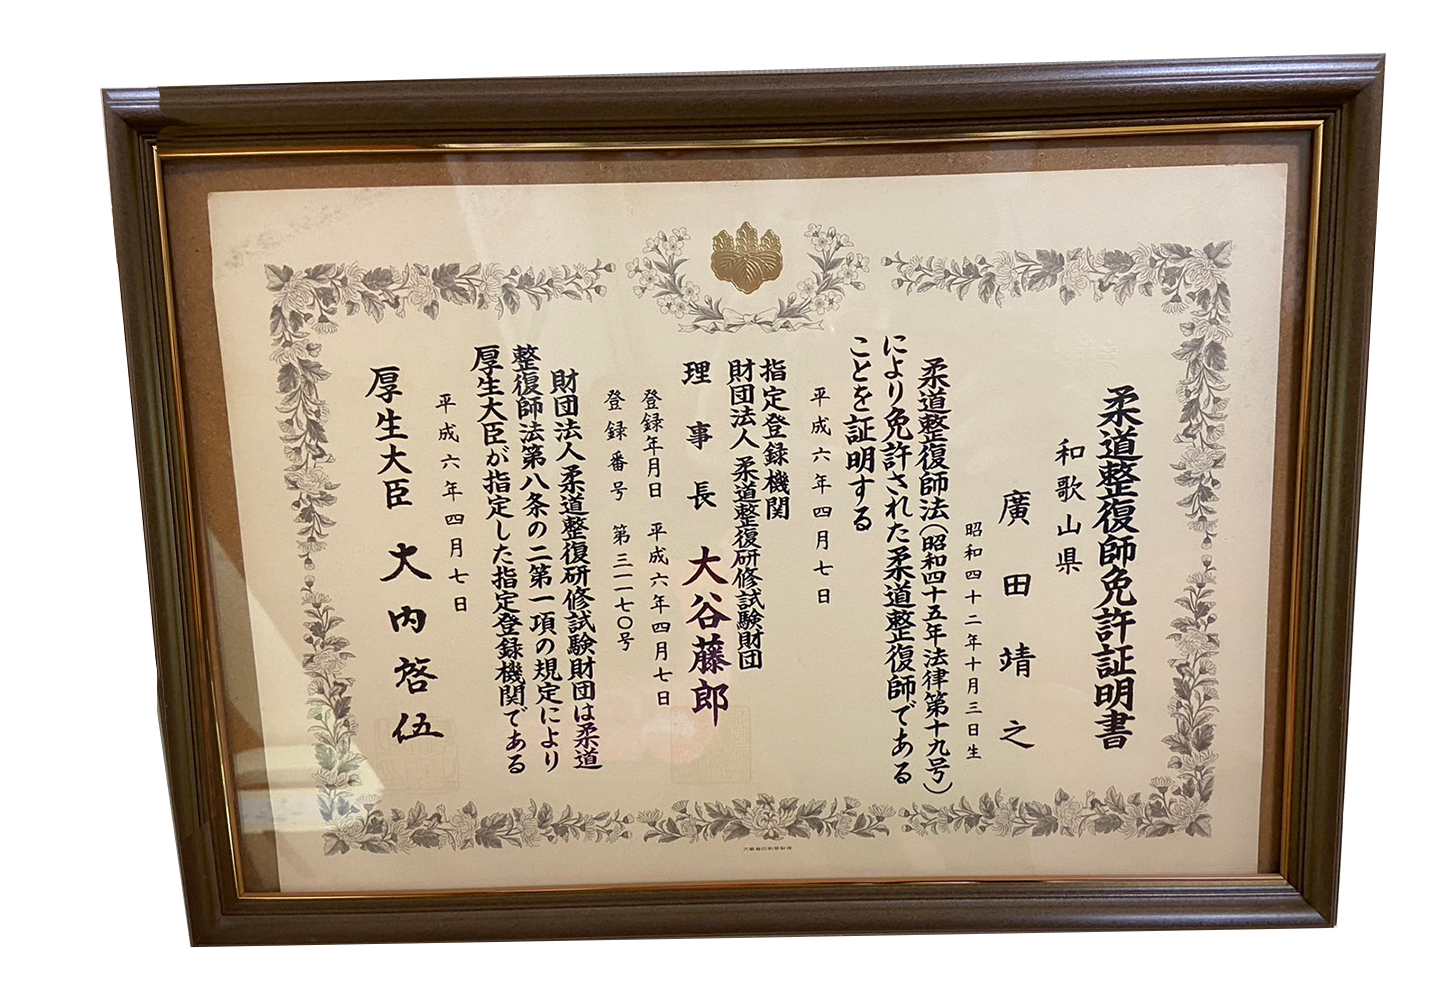 柔道整復師免許証明書
和歌山県
廣田靖之
昭和四十二年十月三日生
柔道整復師法(昭和四十五年法律第十九号)
により免許された柔道整復師である
ことを証明する
平成六年四月七日
指定登録機関
財団法人 柔道整復研修試験財団
理事長 大谷藤郎
登録年月日 平成六年四月七日
登録番号 第三一一七〇号
財団法人柔道整復研修試験財団は柔道
整復師法第八条の二第一項の規定により
厚生大臣が指定した指定登録機関である
平成六年四月七日
厚生大臣 大内啓伍